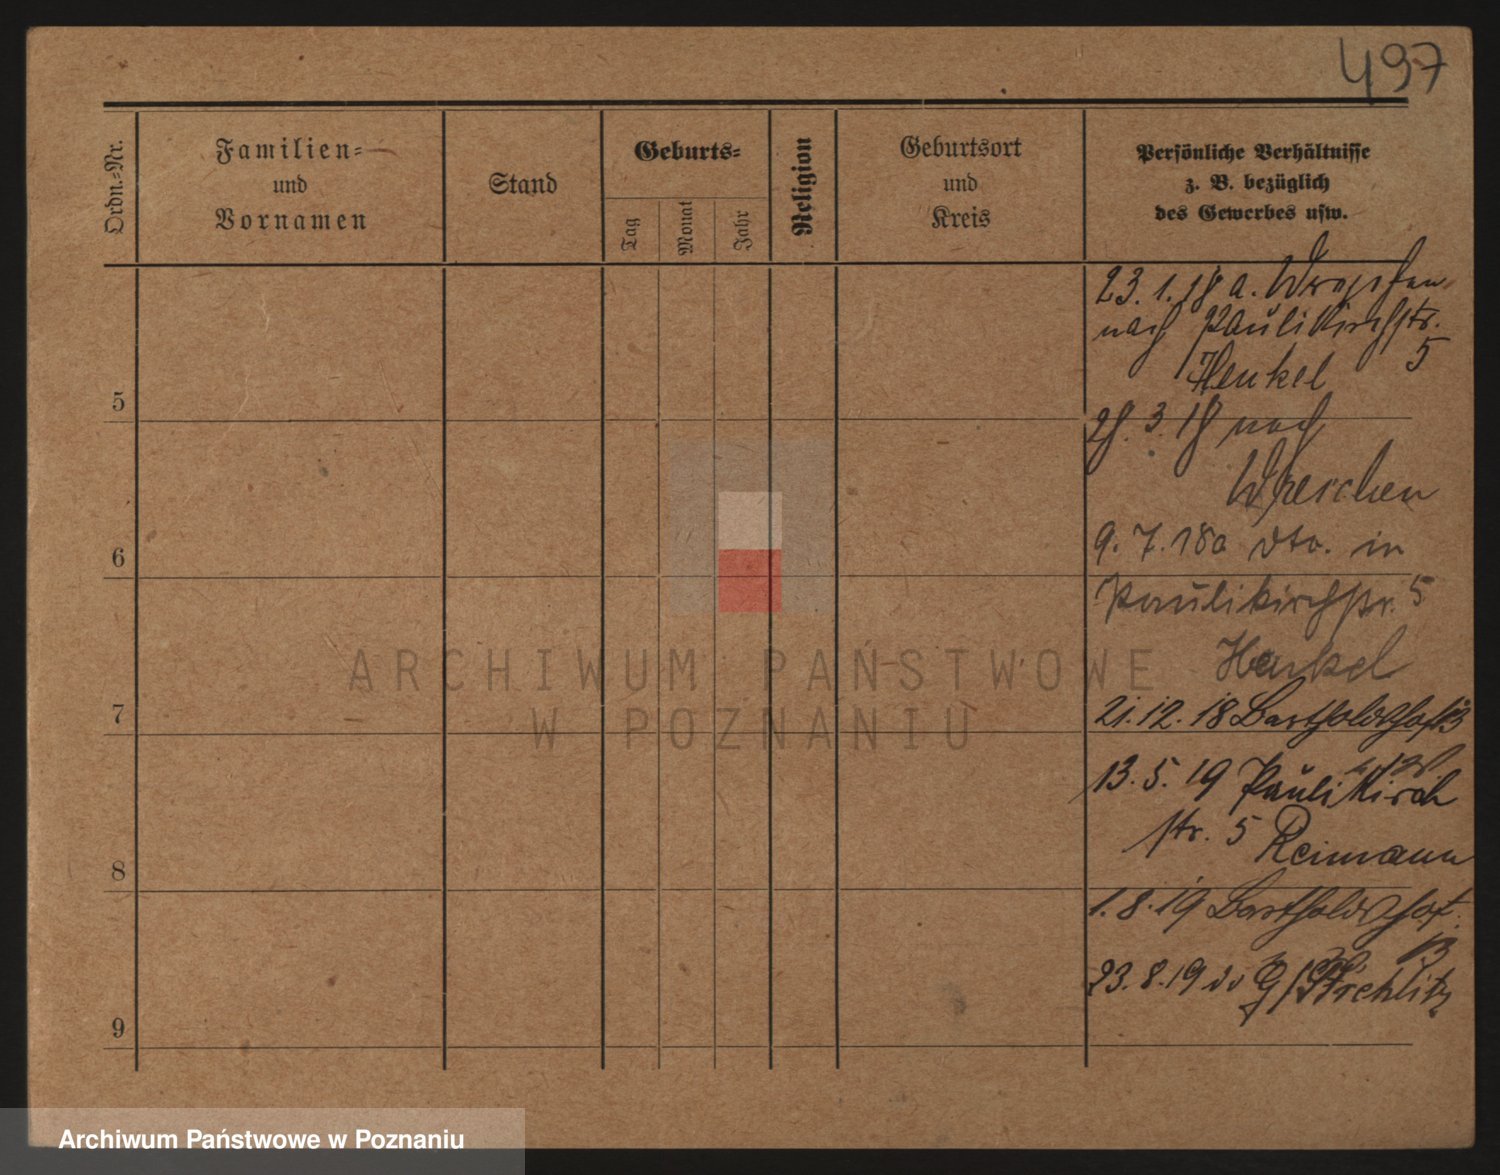 497
Ordn.-Nr.
Familien-
und
Vornamen
Stand
Geburts-
Tag
Monat
Jahr
Religion
Geburtsort
und
Kreis
Persönliche Verhältnisse
z. B. bezüglich
des Gewerbes usw.
23. 1. 18 a.
nach Paulikirchstr.
5
Henkel
5
28. 3. 18 nach
Wreschen
6
9. 7. 18 a dto. in
Paulikirchstr. 5
Henkel
7
21. 12. 18 Bartholdshof
13. 5. 19 Paulikirch
str. 5 Reimann
8
1. 8. 19 Bartholdshof
23. 8. 19 G/Strehlitz
9
ARCHIWUM PAŃSTWOWE
W POZNANIU
Archiwum Państwowe w Poznaniu